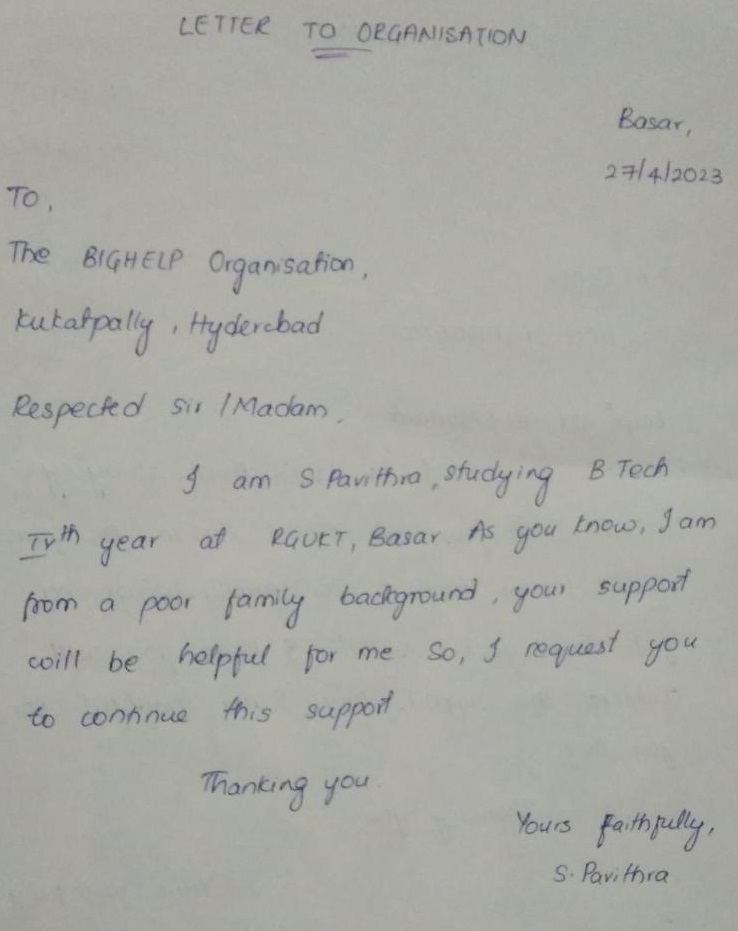 LETTER TO ORGANISATION
Basar,
27/4/2023
To,
The BIGHELP Organisation,
Kukatpally, Hyderabad.
Respected Sir / Madam,
I am S Pavithra, studying B Tech
IVth year at RGUKT, Basar. As you know, I am
from a poor family background, your support
will be helpful for me. So, I request you
to continue this support.
Thanking you.
Yours faithfully,
S. Pavithra